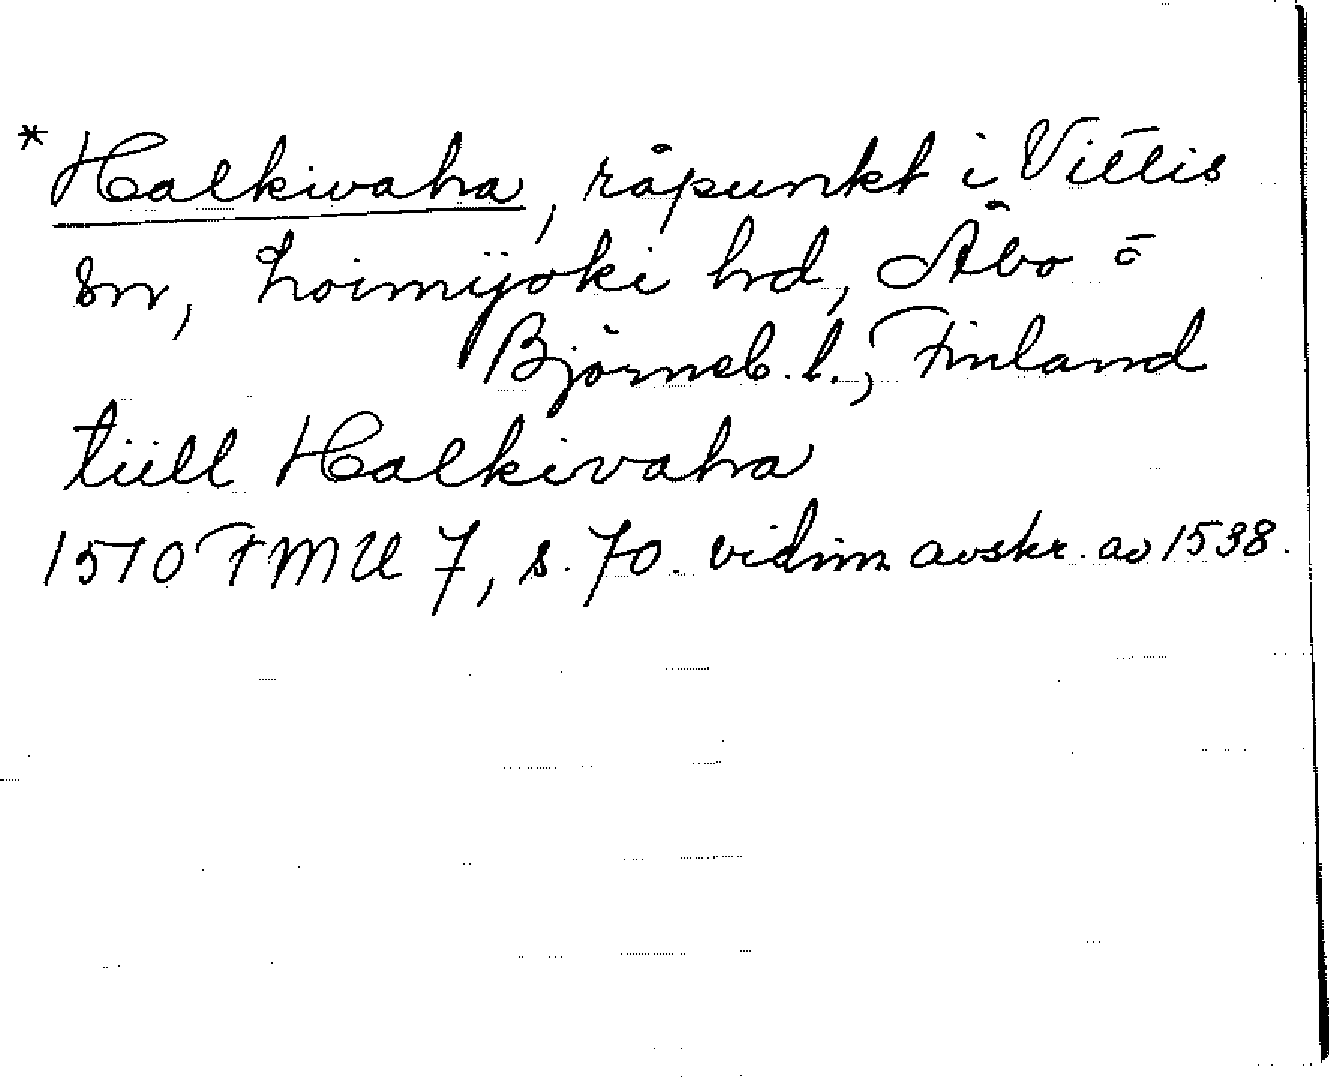 *Halkivaha, råpunkt i Vittis
sn, Loimijoki hd, Åbo o
Björneb. l., Finland
tiill Halkivaha
1510 FMU 7, s. 70. vidim. avskr. av 1538.